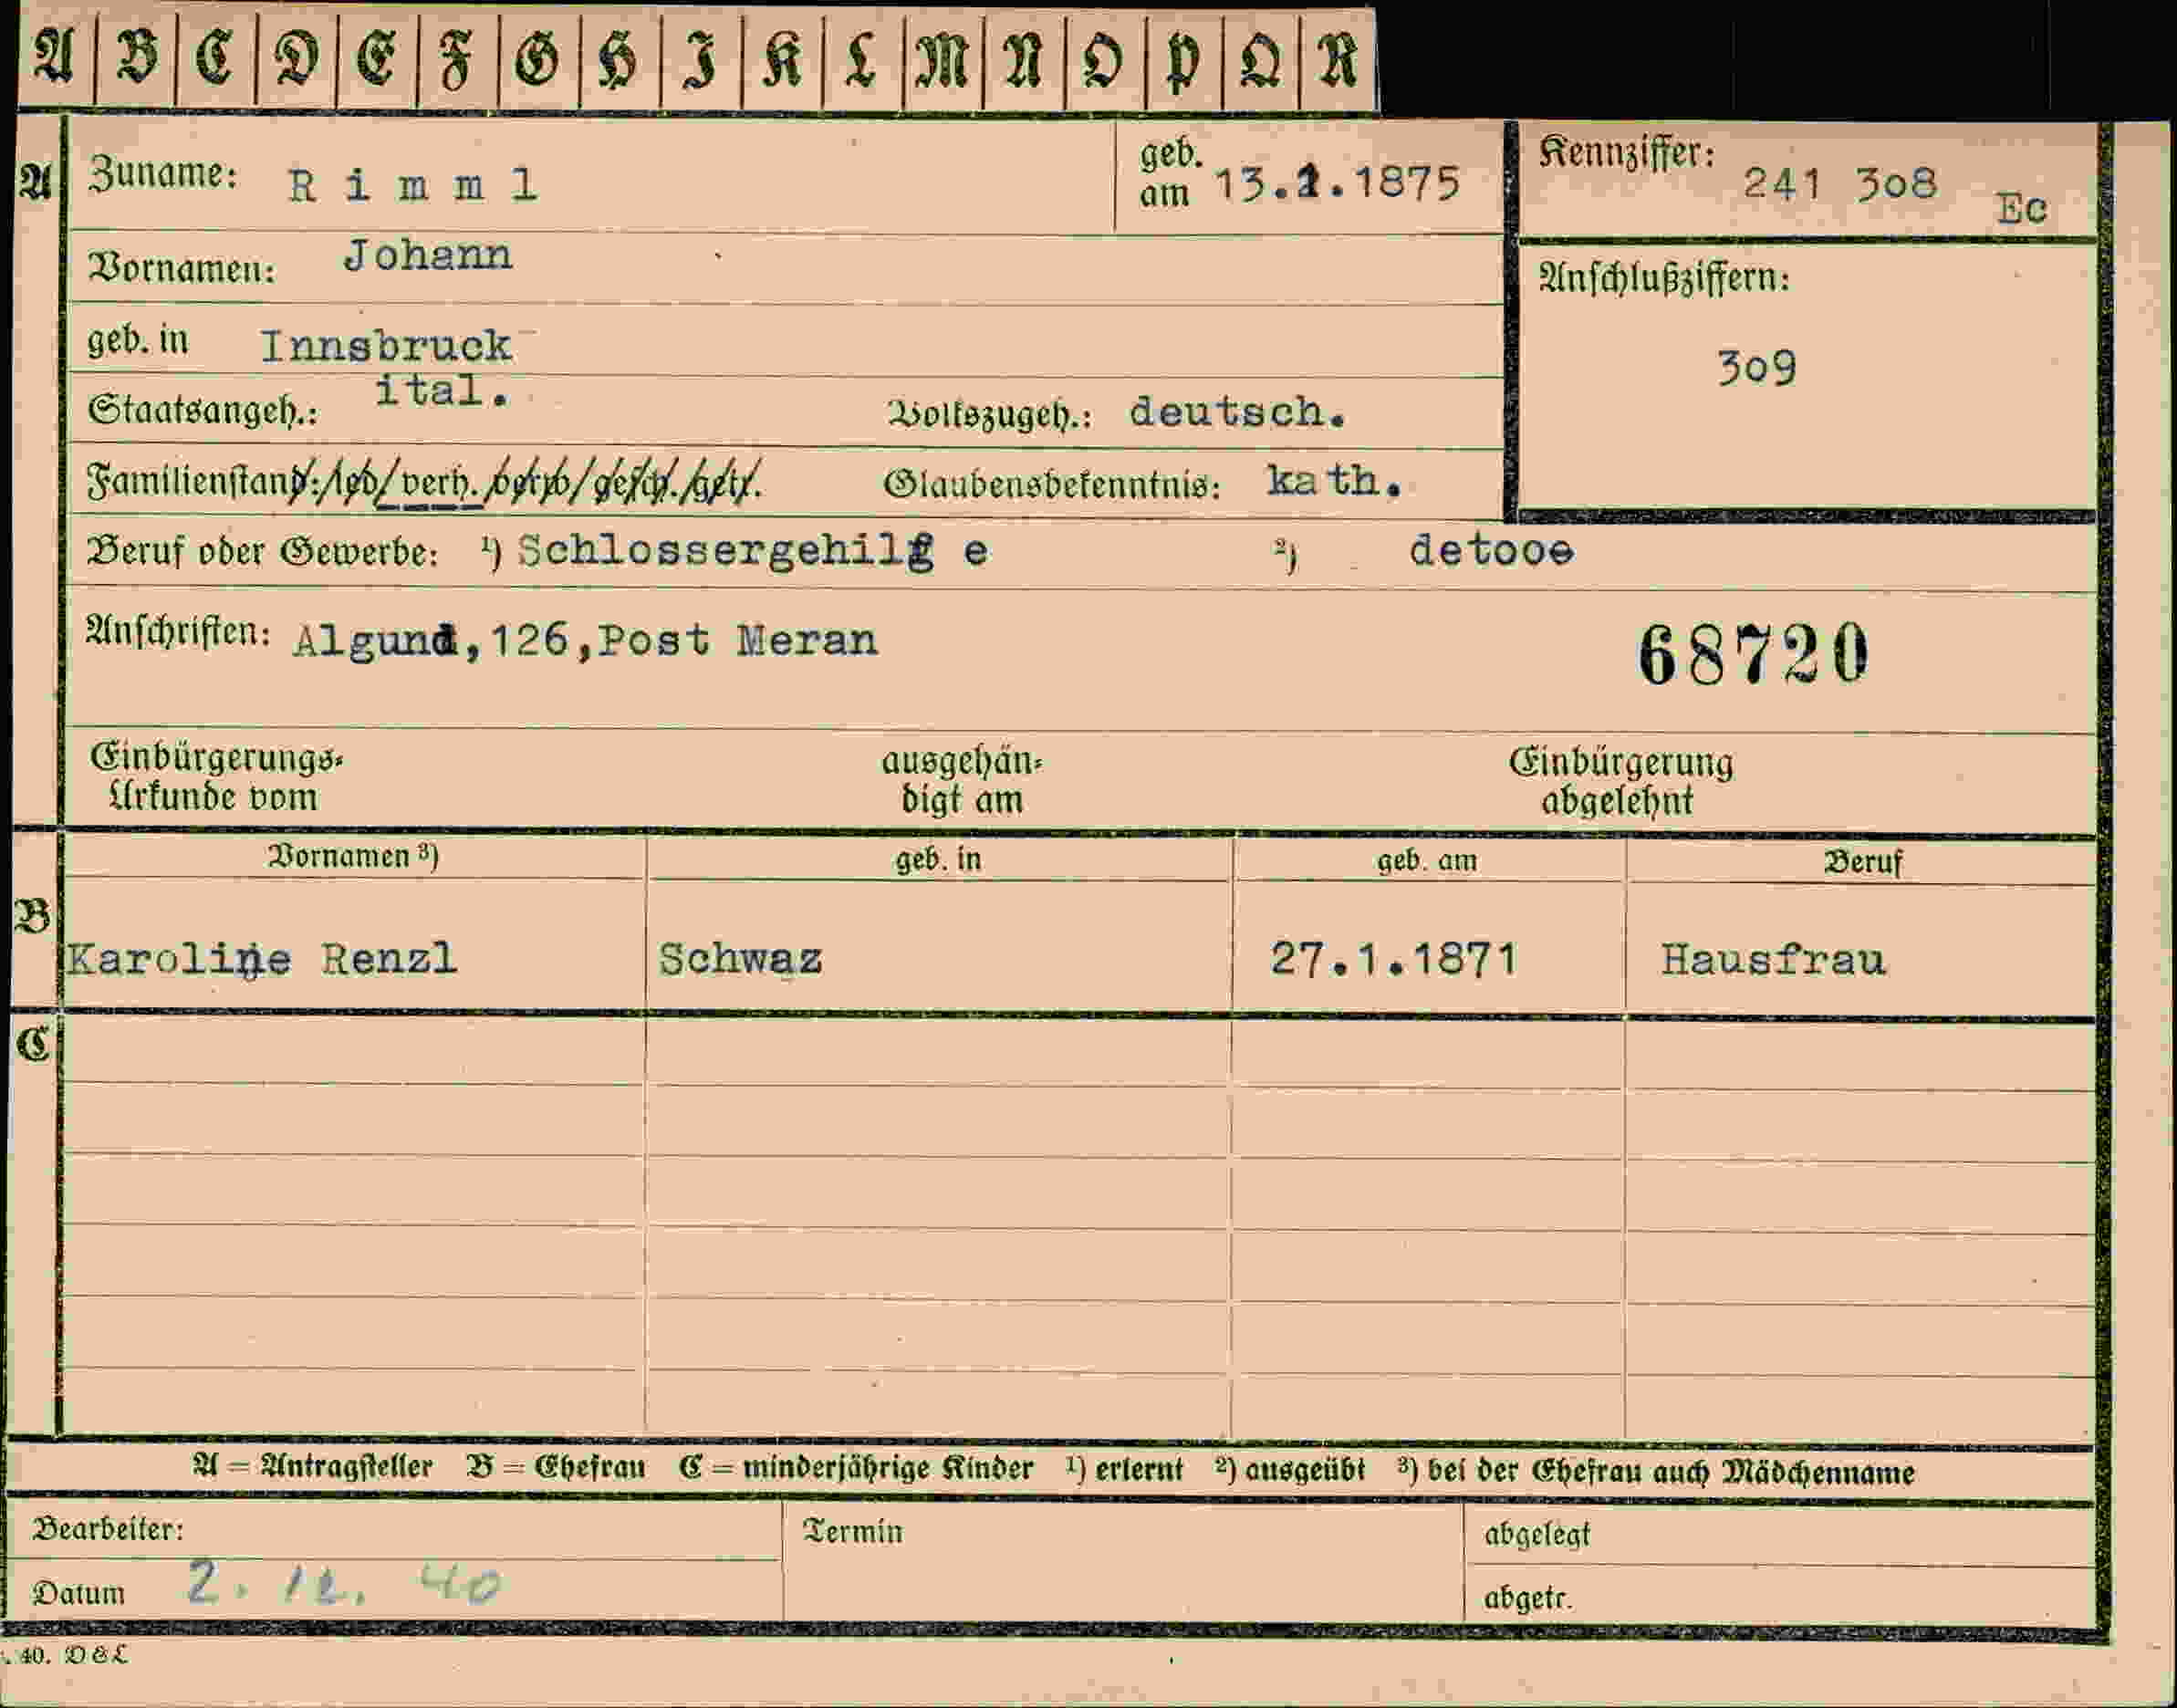 A B C D E F G H I K L M N O P Q R
A Zuname: Rimml geb. am 13.1.1875 Kennziffer: 241 308 Ec
Vornamen: Johann Anschlußziffern:
geb. in Innsbruck 309
Staatsangeh.: ital. Volkszugeh.: deutsch.
Familienstand: led/verh./verw/gesch./getr. Glaubensbekenntnis: kath.
Beruf oder Gewerbe: ¹) Schlossergehilf e ²) detooe
Anschriften: Algund,126,Post Meran 68720
Einbürgerungs- ausgehän- Einbürgerung
Urkunde vom digt am abgelehnt
Vornamen ³) geb. in geb. am Beruf
B
Karoline Renzl Schwaz 27.1.1871 Hausfrau
C
A = Antragsteller B = Ehefrau C = minderjährige Kinder ¹) erlernt ²) ausgeübt ³) bei der Ehefrau auch Mädchenname
Bearbeiter: Termin abgelegt
Datum 2. 12. 40 abgetr.
40. D & L